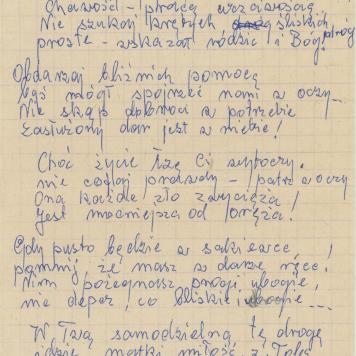 Chciwości – pracą uczciwością.
Nie szukaj krętych śliskich dróg
proste – wskazał rodzic i Bóg!
Obdarzaj bliźnich pomocą
byś mógł spojrzeć nam w oczy...
Nie skąp dobroci w potrzebie
Zasłużony dar jest w niebie!
Choć życie łzę Ci wytoczy.
nie cofaj prawdy – patrz w oczy
Ona każde zło zwycięża!
Jest mocniejsza od oręża.
Gdy pusto będzie w sakiewce !
pamnij że masz w darze ręce!
Nim pożegnasz progi ubogie,
nie depcz, co bliskie i ubogie...
W Twą samodzielną tę drogę
idzie matki miłość z Tobą